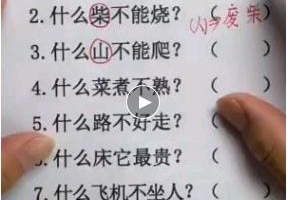 2.什么柴不能烧？（ ）(人)⇒废柴
3.什么山不能爬？（ ）
4.什么菜煮不熟？（ ）
5.什么路不好走？（ ）
6.什么床它最贵？（ ）
7.什么飞机不坐人？（ ）